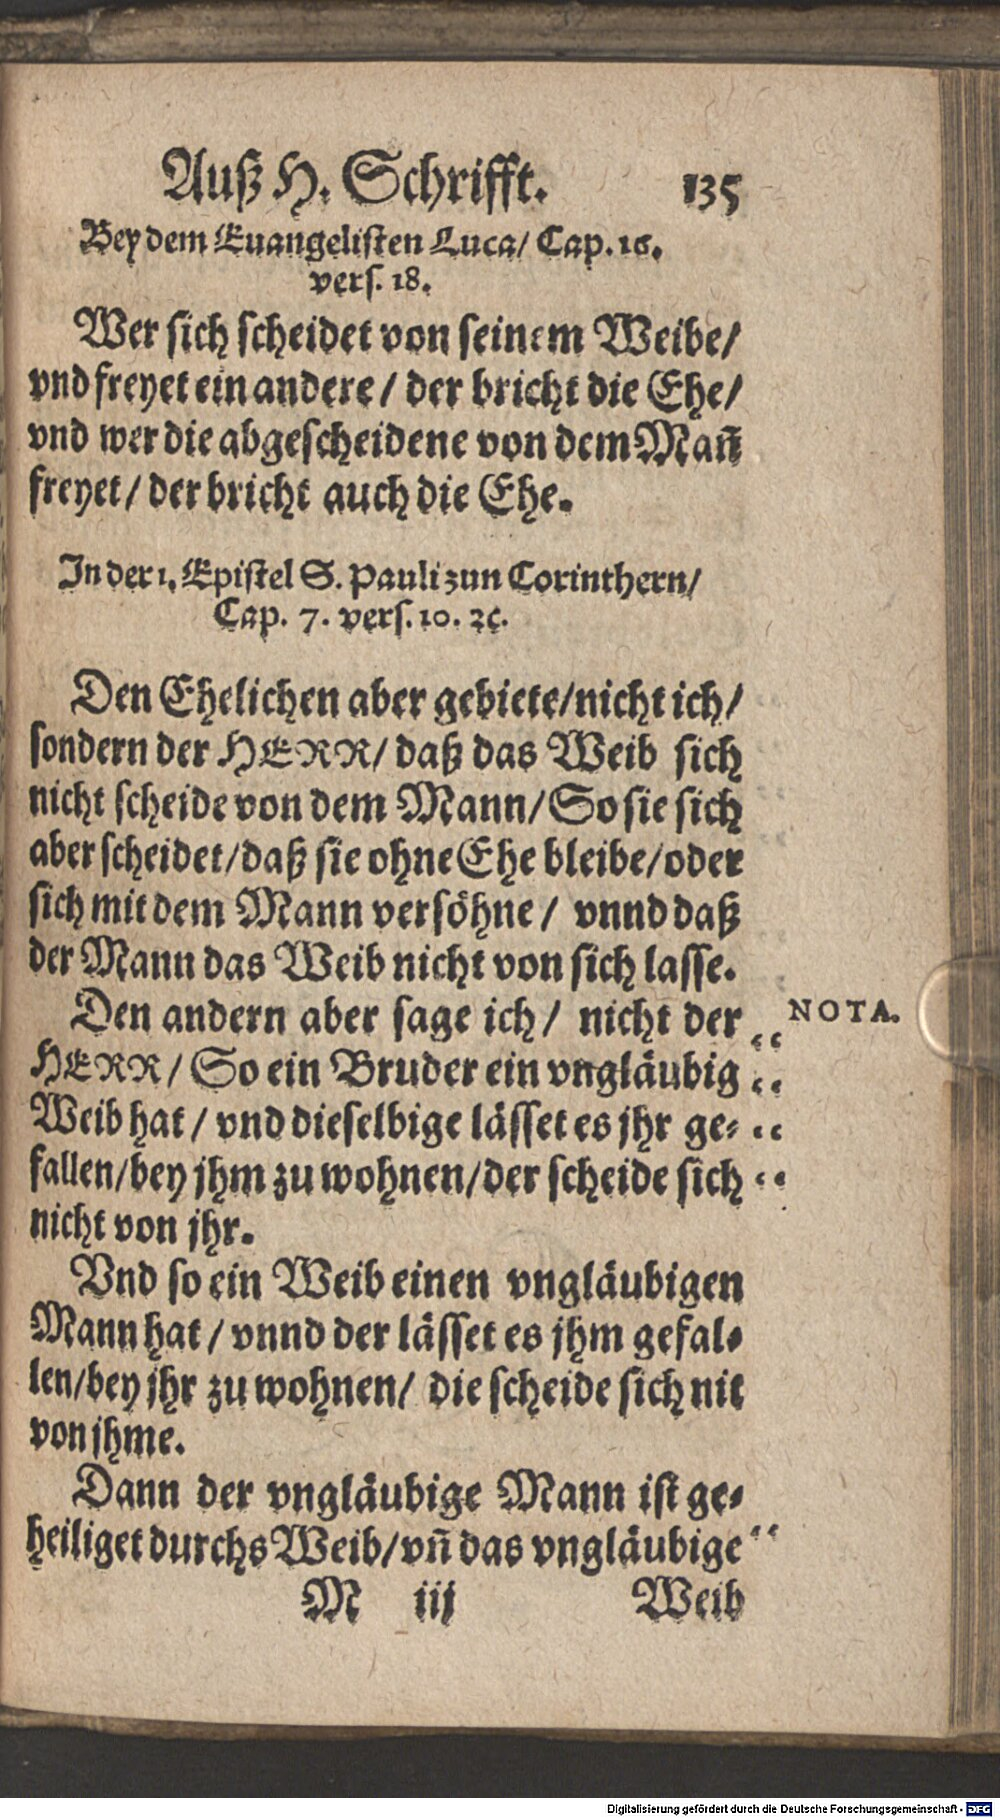 Auß H. Schrifft. 135
Bey dem Euangelisten Luca/ Cap. 16.
vers. 18.
Wer sich scheidet von seinem Weibe/
vnd freyet ein andere/ der bricht die Ehe/
vnd wer die abgescheidene von dem Mañ
freyet/ der bricht auch die Ehe.
In der 1. Epistel S. Pauli zun Corinthern/
Cap. 7. vers. 10. ꝛc.
Den Ehelichen aber gebiete/ nicht ich/
sondern der HERR/ daß das Weib sich
nicht scheide von dem Mann/ So sie sich
aber scheidet/ daß sie ohne Ehe bleibe/ oder
sich mit dem Mann versöhne/ vnnd daß
der Mann das Weib nicht von sich lasse.
Den andern aber sage ich/ nicht der NOTA.
HERR/ So ein Bruder ein vngläubig
Weib hat/ vnd dieselbige lässet es jhr ge-
fallen/ bey jhm zu wohnen/ der scheide sich
nicht von jhr.
Vnd so ein Weib einen vngläubigen
Mann hat/ vnnd der lässet es jhm gefal-
len/ bey jhr zu wohnen/ die scheide sich nit
von jhme.
Dann der vngläubige Mann ist ge-
heiliget durchs Weib/ vñ das vngläubige
M iij Weib
Digitalisierung gefördert durch die Deutsche Forschungsgemeinschaft - DFG